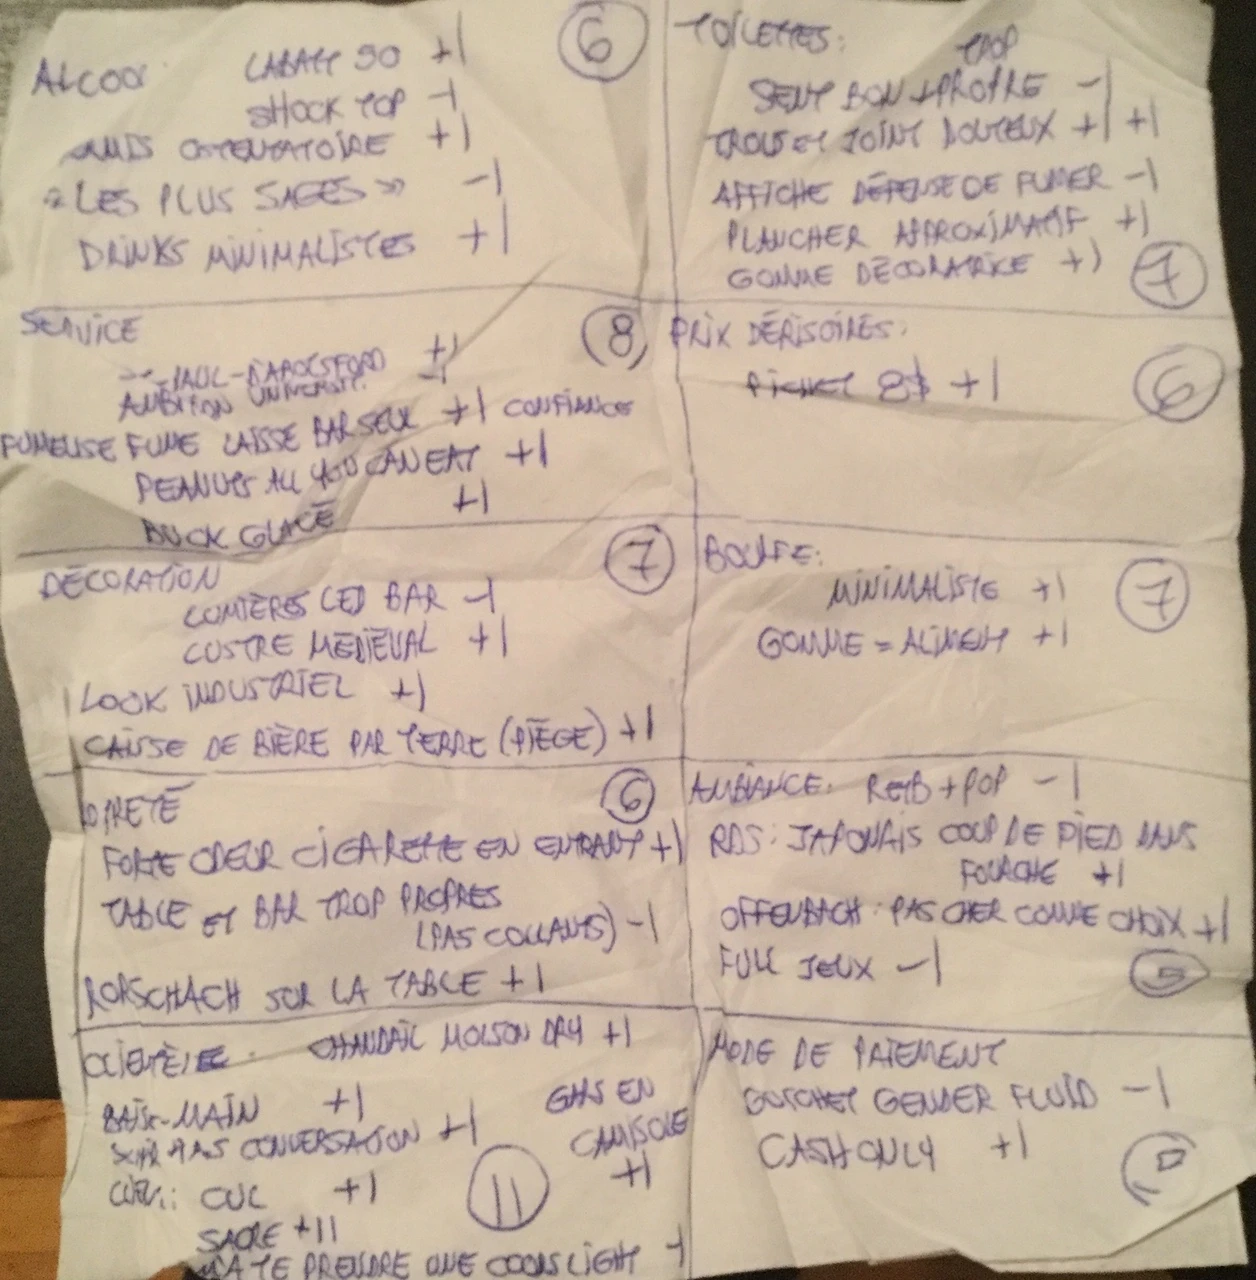 ALCOOL LABATT 50 +1 6
SHOCK TOP -1
AMIS OSTENTATOIRE +1
« LES PLUS SAGES » -1
DRINKS MINIMALISTES +1
TOILETTES:
TROP
SENT BON + PROPRE -1
TROUS ET JOINT DOUTEUX +1 +1
AFFICHE DÉFENSE DE FUMER -1
PLANCHER APPROXIMATIF +1
GOMME DÉCORATRICE +1 7
SERVICE 8
+1
AMBITION UNIVERSIT. -1
FUMEUSE FUME LAISSE BAR SEUL +1 CONFIANCE
PEANUTS ALL YOU CAN EAT +1
BUCK GLACÉ +1
PRIX DÉRISOIRES:
PICHET 8$ +1 6
DÉCORATION 7
LUMIÈRES LED BAR -1
LUSTRE MÉDIÉVAL +1
LOOK INDUSTRIEL +1
CAISSE DE BIÈRE PAR TERRE (PIÈGE) +1
BOUFFE:
MINIMALISTE +1 7
GOMME = ALIMENT +1
PRETÉ 6
FORTE ODEUR CIGARETTE EN ENTRANT +1
TABLE ET BAR TROP PROPRES
(PAS COLLANTS) -1
RORSCHACH SUR LA TABLE +1
AMBIANCE: R&B + POP -1
RDS: JAPONAIS COUP DE PIED DANS
FOURCHE +1
OFFENBACH: PAS CHER COMME CHOIX +1
FULL JEUX -1 5
CLIENTÈLE: CHANDAIL MOLSON DRY +1
BAISE-MAIN +1
CONVERSATION +1
CUL +1
SACRE +11
VA TE PRENDRE UNE COORS LIGHT -1
GARS EN
CAMISOLE
+1
11
MODE DE PAIEMENT
GUICHET GENDER FLUID -1
CASH ONLY +1